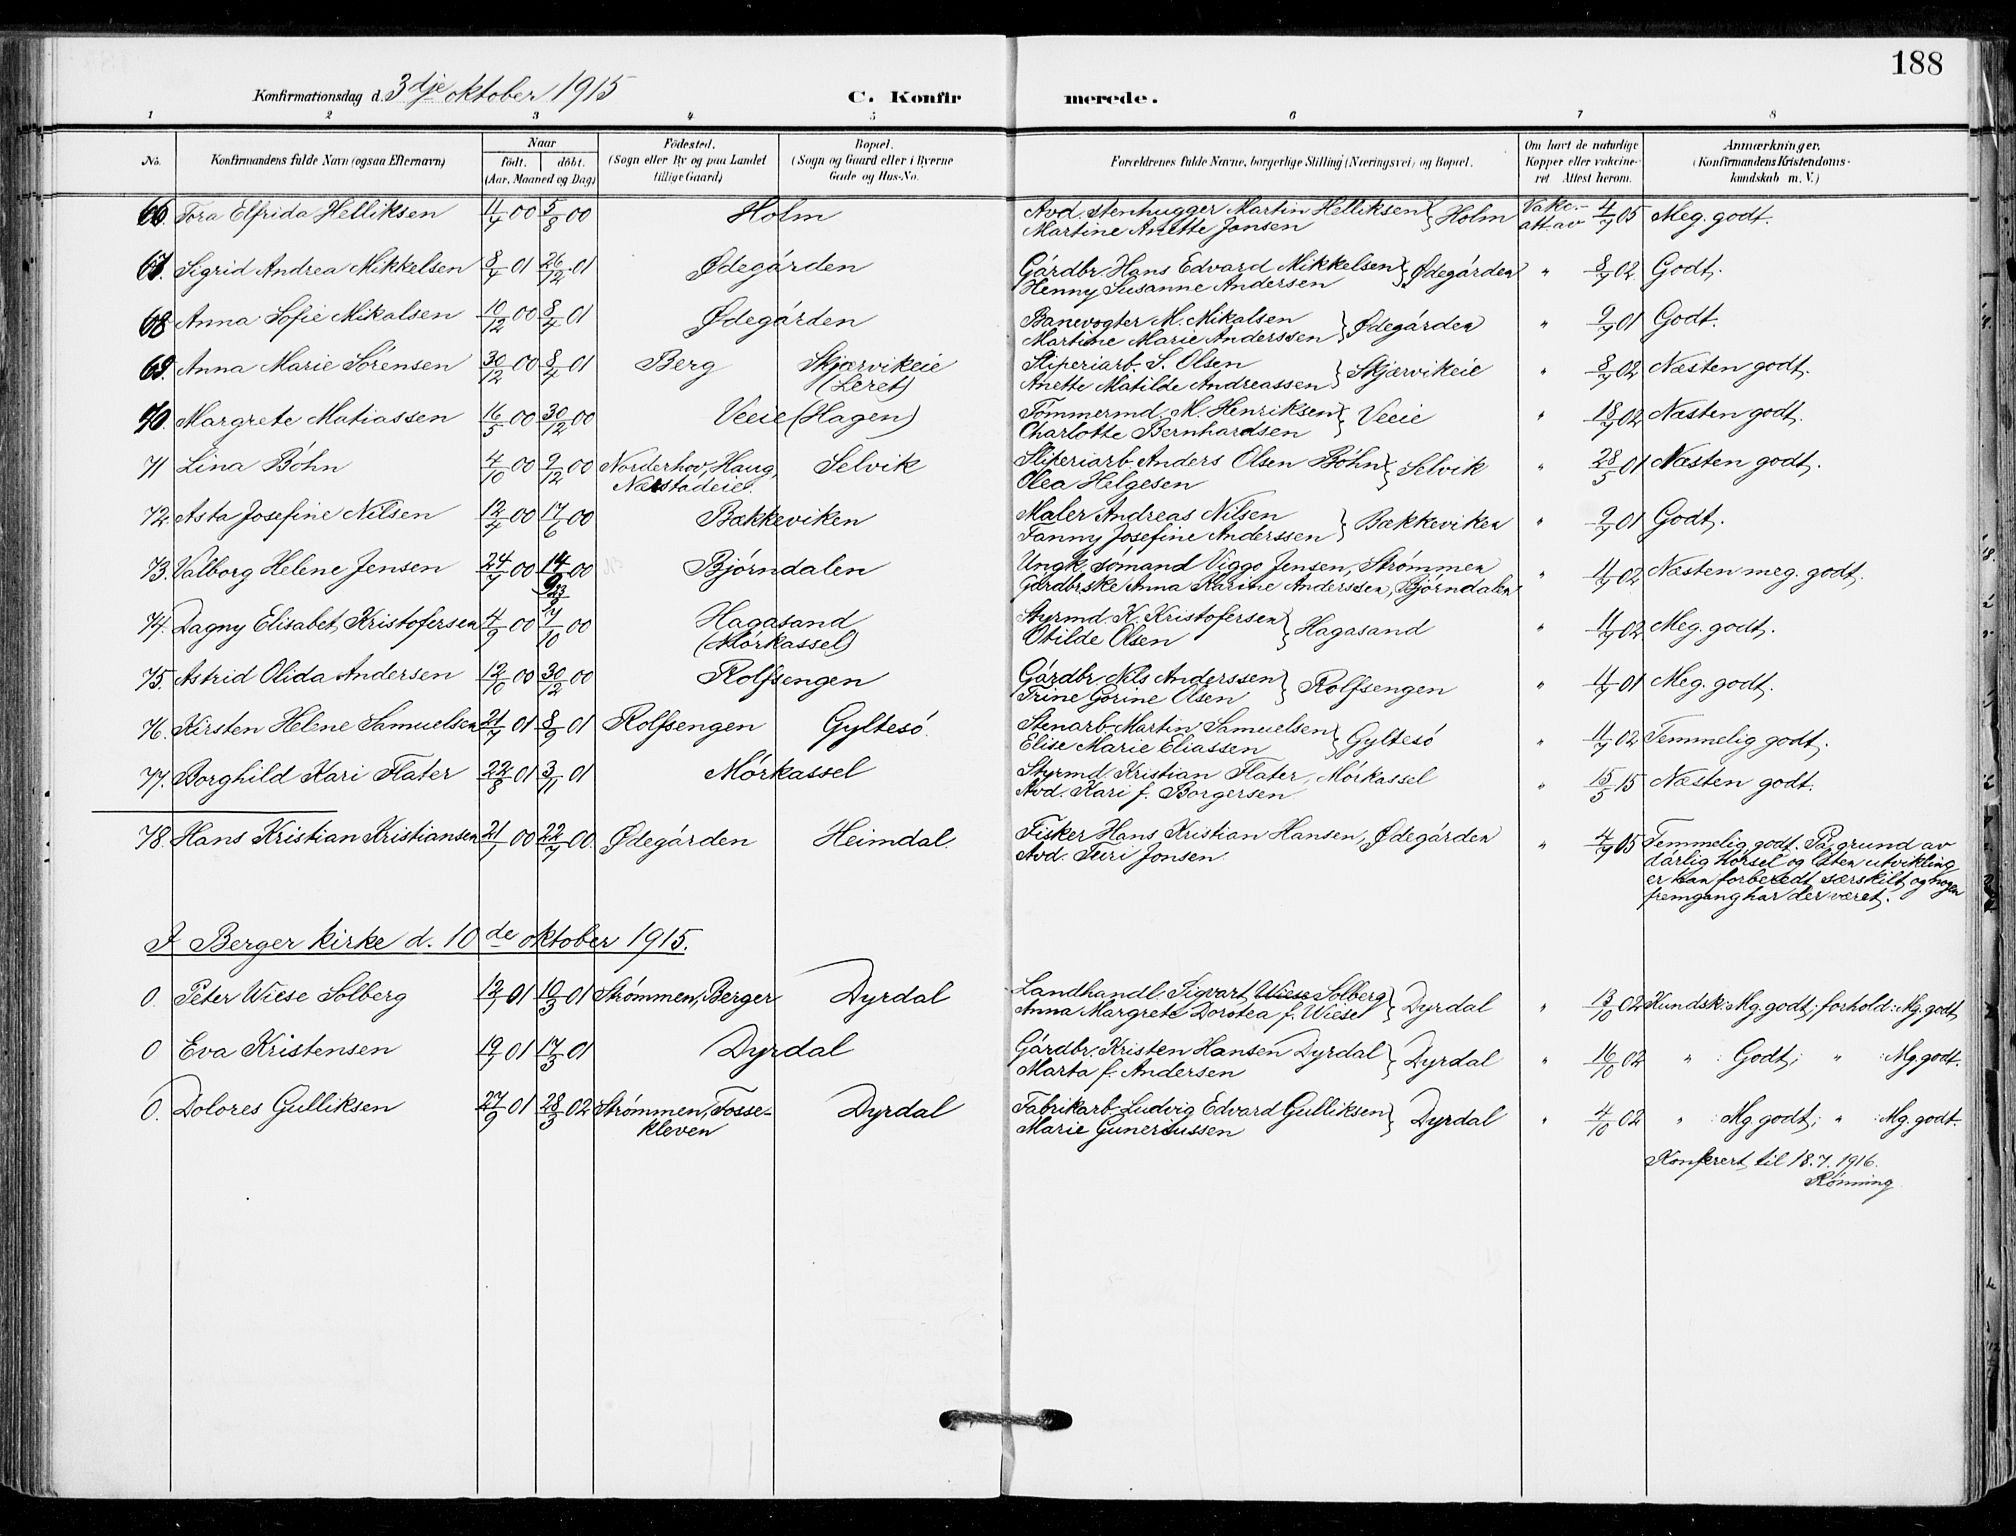 188
Konfirmationsdag d. 3dje oktober 1915 C. Konfirmerede.
1 2 3 4 5 6 7 8
No. Konfirmandens fulde Navn (ogsaa Efternavn) Naar födt. döbt. (Aar, Maaned og Dag) Födested. (Sogn eller By og paa Landet tillige Gaard) Bopæl. (Sogn og Gaard eller i Byerne Gade og Hus-No. Forældrenes fulde Navne, borgerlige Stilling (Næringsvei) og Bopæl. Om havt de naturlige Kopper eller vakcineret. Attest herom. Anmærkninger. (Konfirmandens Kristendomskundskab m. V.)
66 Tora Elfrida Helliksen 11/4 00 5/8 00 Holm Avd. stenhugger Martin Helliksen } Holm Vakc.- 4/7 05 Meg. godt.
Martine Anette Jonsen att av
67. Sigrid Andrea Mikkelsen 8/4 01 26/12 01 Ødegården Gårdbr. Hans Edvard Mikkelsen } Ødegården " 8/7 02 Godt.
Henny Susanne Andersen
68 Anna Sofie Mikalsen 10/12 00 8/4 01 Ødegården Banevogter M. Mikalsen } Ødegården " 9/7 01 Godt.
Martine Marie Anderssen
69. Anna Marie Sørensen 30/12 00 8/4 01 Berg Skjærvikeie Sliperiarb. S. Olsen } Skjærvikeie " 8/7 02 Næsten godt.
(Leret) Anette Matilde Andreassen
70. Margrete Matiassen 16/5 00 30/12 00 Veeie (Hagen) Tømmermd. M. Henriksen } Veeie " 18/7 02 Næsten godt.
Charlotte Bernhardsen
71 Lina Bøhn 4/10 00 9/12 00 Norderhov, Haug, Selvik Sliperiarb. Anders Olsen Bøhn } Selvik " 28/5 01 Næsten godt.
Nærstadeie. Olea Helgesen
72. Asta Josefine Nilsen 12/4 00 17/6 00 Bækkeviken Maler Andreas Nilsen } Bækkeviken " 9/7 01 Godt.
Fanny Josefine Anderssen
73. Valborg Helene Jensen 24/7 00 14/9 00 Bjørndalen Ungk. sømand Viggo Jensen, Strømmen " 11/7 02 Næsten meg. godt.
23/9 Gårdbrske Anna Karine Anderssen, Bjørndalen
74. Dagny Elisabet Kristofersen 4/9 00 7/10 00 Hagasand Styrmd. K. Kristofersen } Hagasand " 11/7 02 Meg. godt.
(Mørkassel) Otilde Olsen
75. Astrid Olida Andersen 12/10 00 30/12 00 Rolfsengen Gårdbr. Nils Anderssen } Rolfsengen " 11/7 01 Meg. godt.
Trine Gorine Olsen
76. Kirsten Helene Samuelsen 21/7 01 8/9 01 Rolfsengen Gyltesø. Stenarb. Martin Samuelsen } Gyltesø " 11/7 02 Temmelig godt.
Elise Marie Eliassen
77. Borghild Kari Flater 22/8 01 3/11 01 Mørkassel Styrmd. Kristian Flater, Mørkassel " 15/5 15 Næsten godt.
Avd. Kari f. Borgersen
78. Hans Kristian Kristiansen 21/1 00 22/7 00. Ødegården Heimdal. Fisker Hans Kristian Hansen, Ødegården " 4/7 05 Temmelig godt. På grund av
Avd. Turi Jonsen. dårlig hørsel og liten utvikling
er han forberedt særskilt, og nogen
fremgang har der været.
I Berger kirke d. 10de oktober 1915.
0. Peter Wiese Solberg 12/1 01 10/3 01 Strømmen, Berger Dyrdal Landhandl. Sigvart Wiese Solberg } Dyrdal " 13/10 02 Kundsk.: Mg. godt; forhold: Mg. godt
Anna Margrete Dorotea f. Wiese
0 Eva Kristensen 19/1 01 17/3 01 Dyrdal Gårdbr. Kristen Hansen Dyrdal } Dyrdal " 16/10 02 " : Godt; " : Mg. godt.
Marta f. Andersen
0. Dolores Gulliksen 27/9 01 28/3 02 Strømmen, Fosse- Dyrdal Fabrikarb. Ludvig Edvard Gulliksen } Dyrdal " 4/10 02 " : Mg. godt; " : Mg. godt.
kleven Marie Guneriussen
Konferert til 18.7.1916.
Rønning